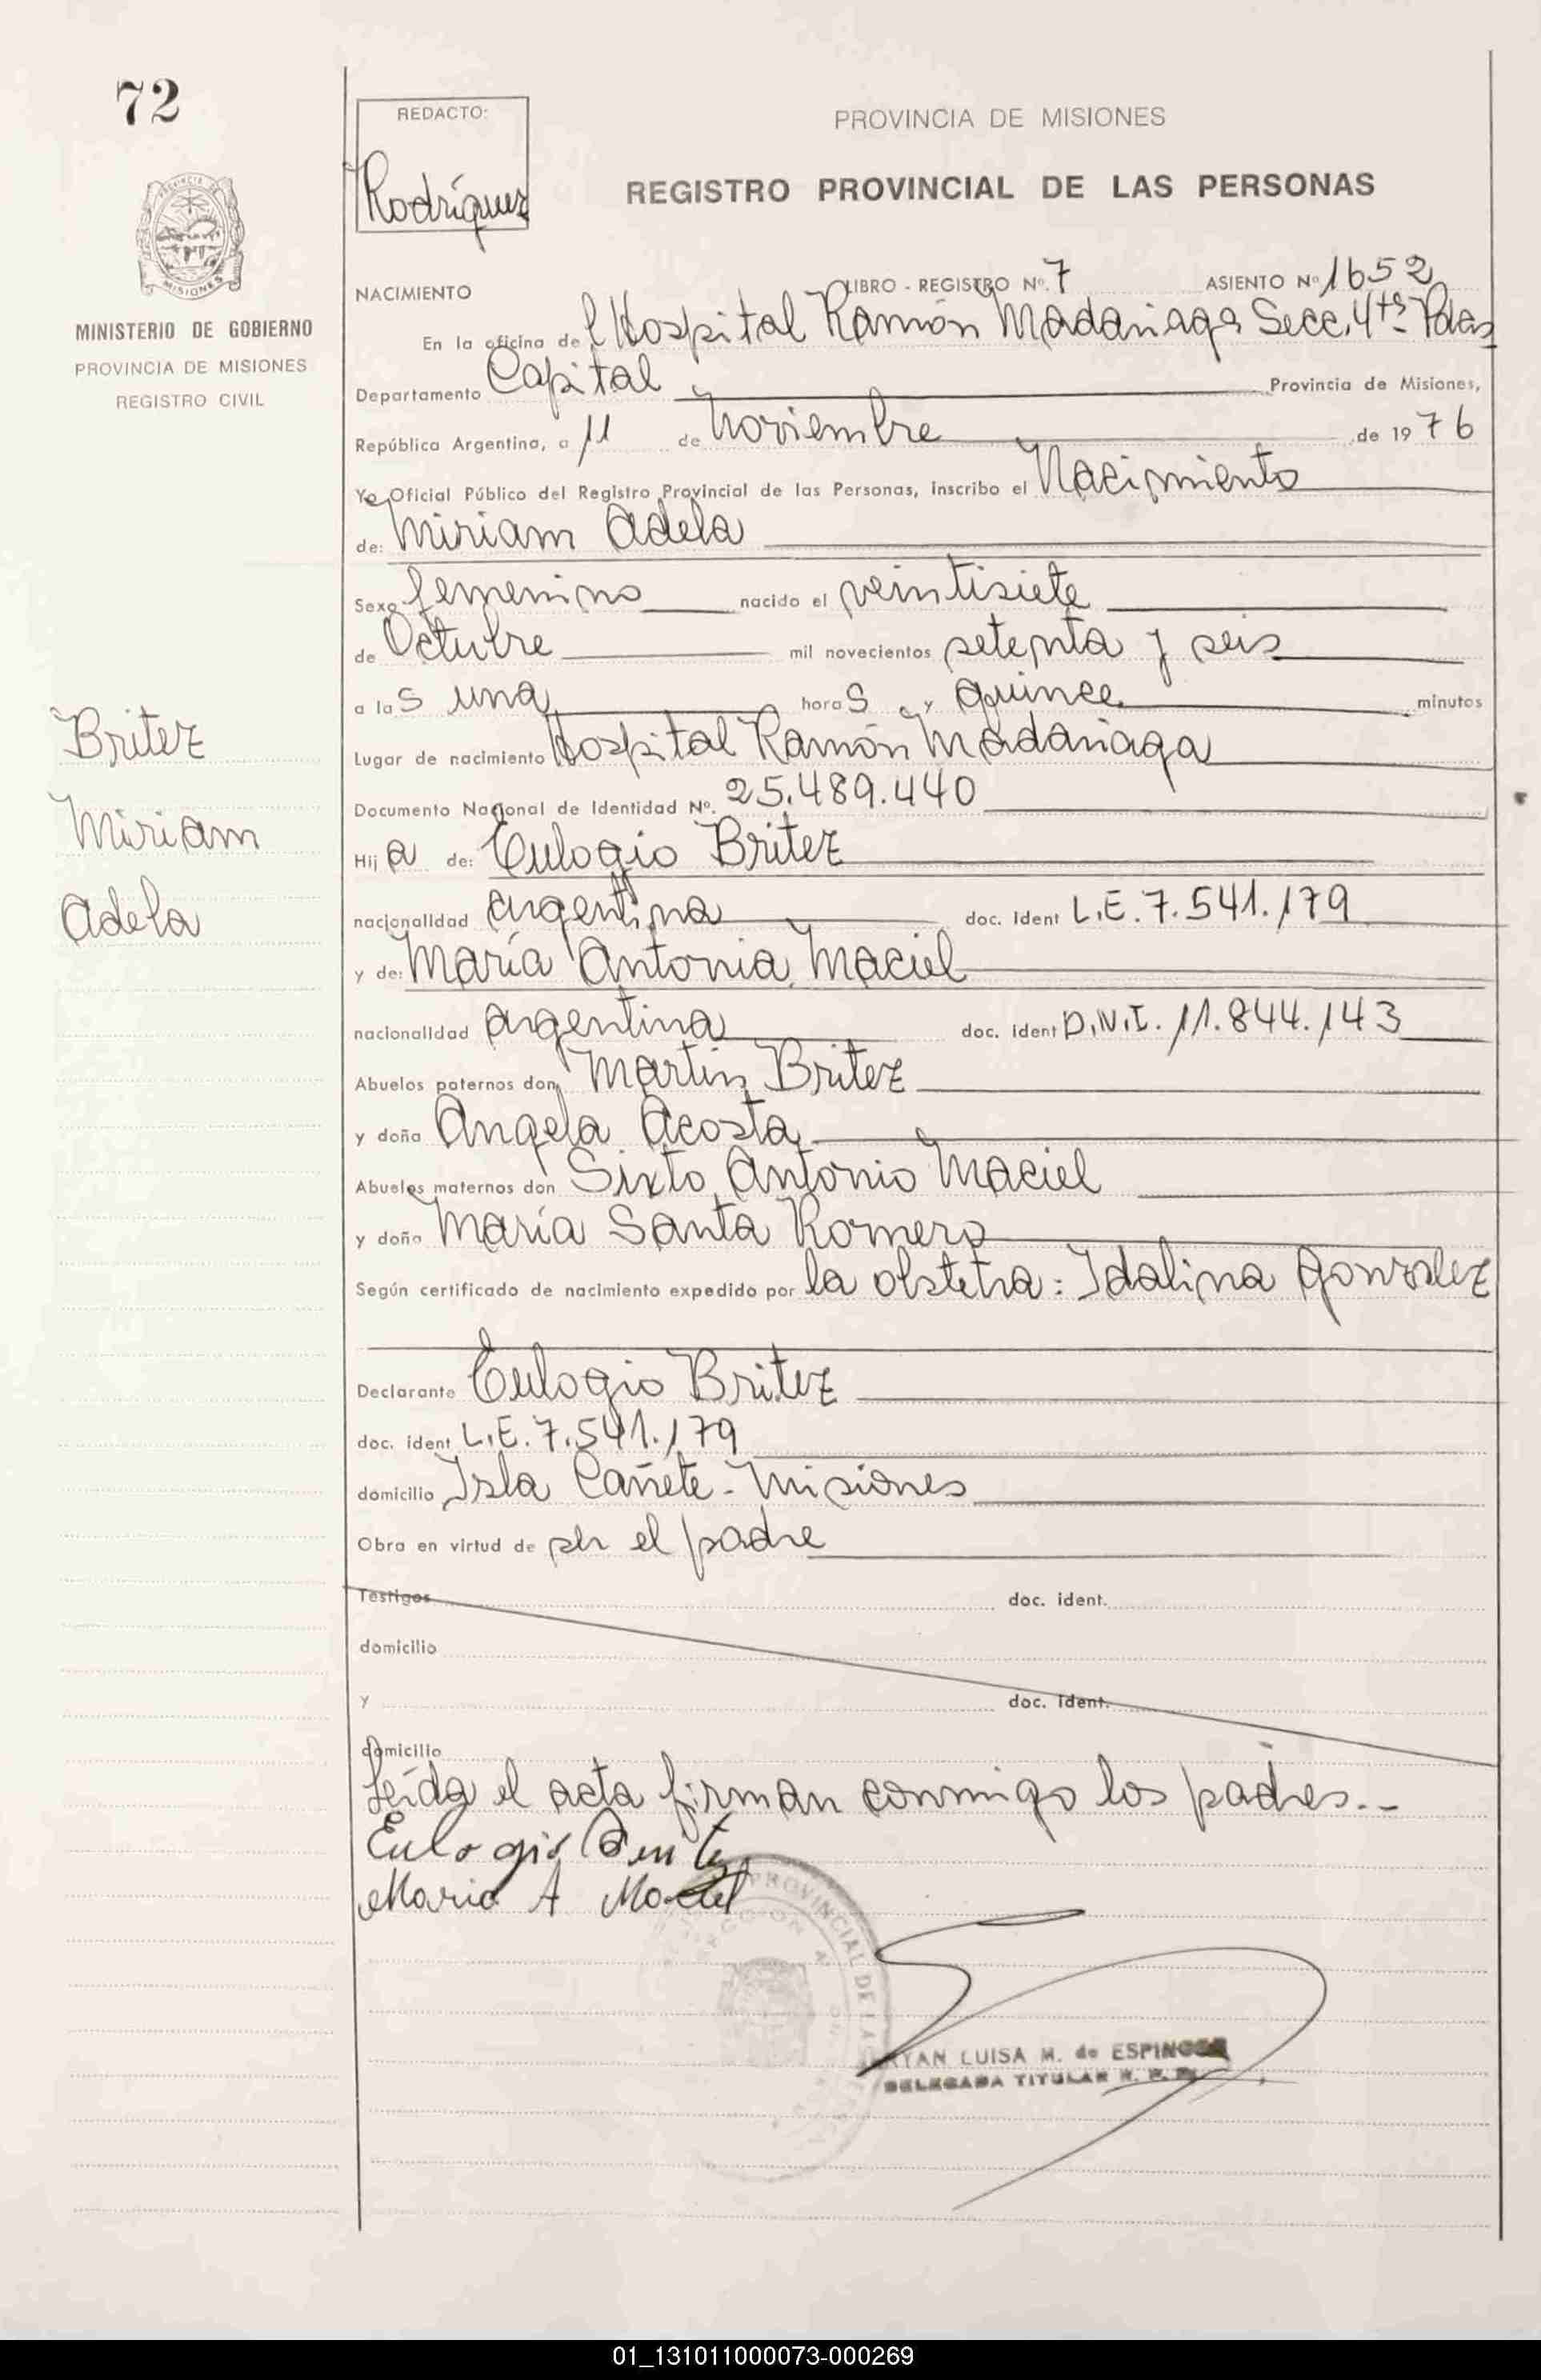 72
MINISTERIO DE GOBIERNO
PROVINCIA DE MISIONES
REGISTRO CIVIL
Britez
Miriam
Adela
REDACTO:
Rodríguez
PROVINCIA DE MISIONES
REGISTRO PROVINCIAL DE LAS PERSONAS
NACIMIENTO LIBRO - REGISTRO Nº. 7 ASIENTO Nº 1652
En la oficina del Hospital Ramón Madariaga Secc. 4ta Pdas
Departamento Capital Provincia de Misiones,
República Argentina, a 11 de noviembre de 1976
Yo Oficial Público del Registro Provincial de las Personas, inscribo el Nacimiento
de: Miriam Adela
Sexo femenino nacido el veintisiete
de Octubre mil novecientos setenta y seis
a las una horas y quince minutos
Lugar de nacimiento Hospital Ramón Madariaga
Documento Nacional de Identidad Nº. 25.489.440
Hija de: Eulogio Britez
nacionalidad argentina doc. ident L.E. 7.541.179
y de: María Antonia Maciel
nacionalidad argentina doc. ident D.N.I. 11.844.143
Abuelos paternos don Martin Britez
y doña Angela Acosta
Abuelos maternos don Sixto Antonio Maciel
y doña María Santa Romero
Según certificado de nacimiento expedido por la obstetra: Idalina Gonzalez
Declarante Eulogio Britez
doc. ident L.E. 7.541.179
domicilio Isla Cañete - Misiones
Obra en virtud de ser el padre
Testigos doc. ident.
domicilio
y doc. ident.
domicilio
Leída el acta firman conmigo los padres.-
Eulogio
Maria A Maciel
PROVINCIAL DE LAS
LUISA M. de ESPINOSA
DELEGADA TITULAR R. P. P.
01_131011000073-000269